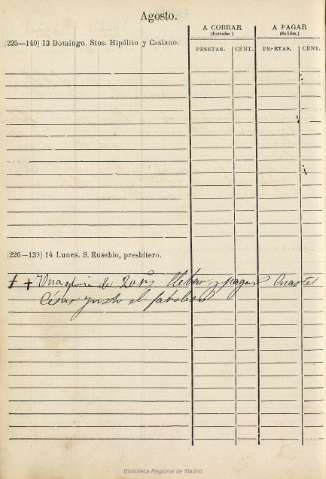 Agosto.
A COBRAR
(Entradas.)
A PAGAR
(Salidas.)
(225—140) 13 Domingo. Stos. Hipólito y Casiano.
PESETAS.
CENT.
PESETAS.
CENT.
14 Lunes. S. Eusebio, presbítero.
de
y pagar Cuartel
junto al
Biblioteca Regional de Madrid